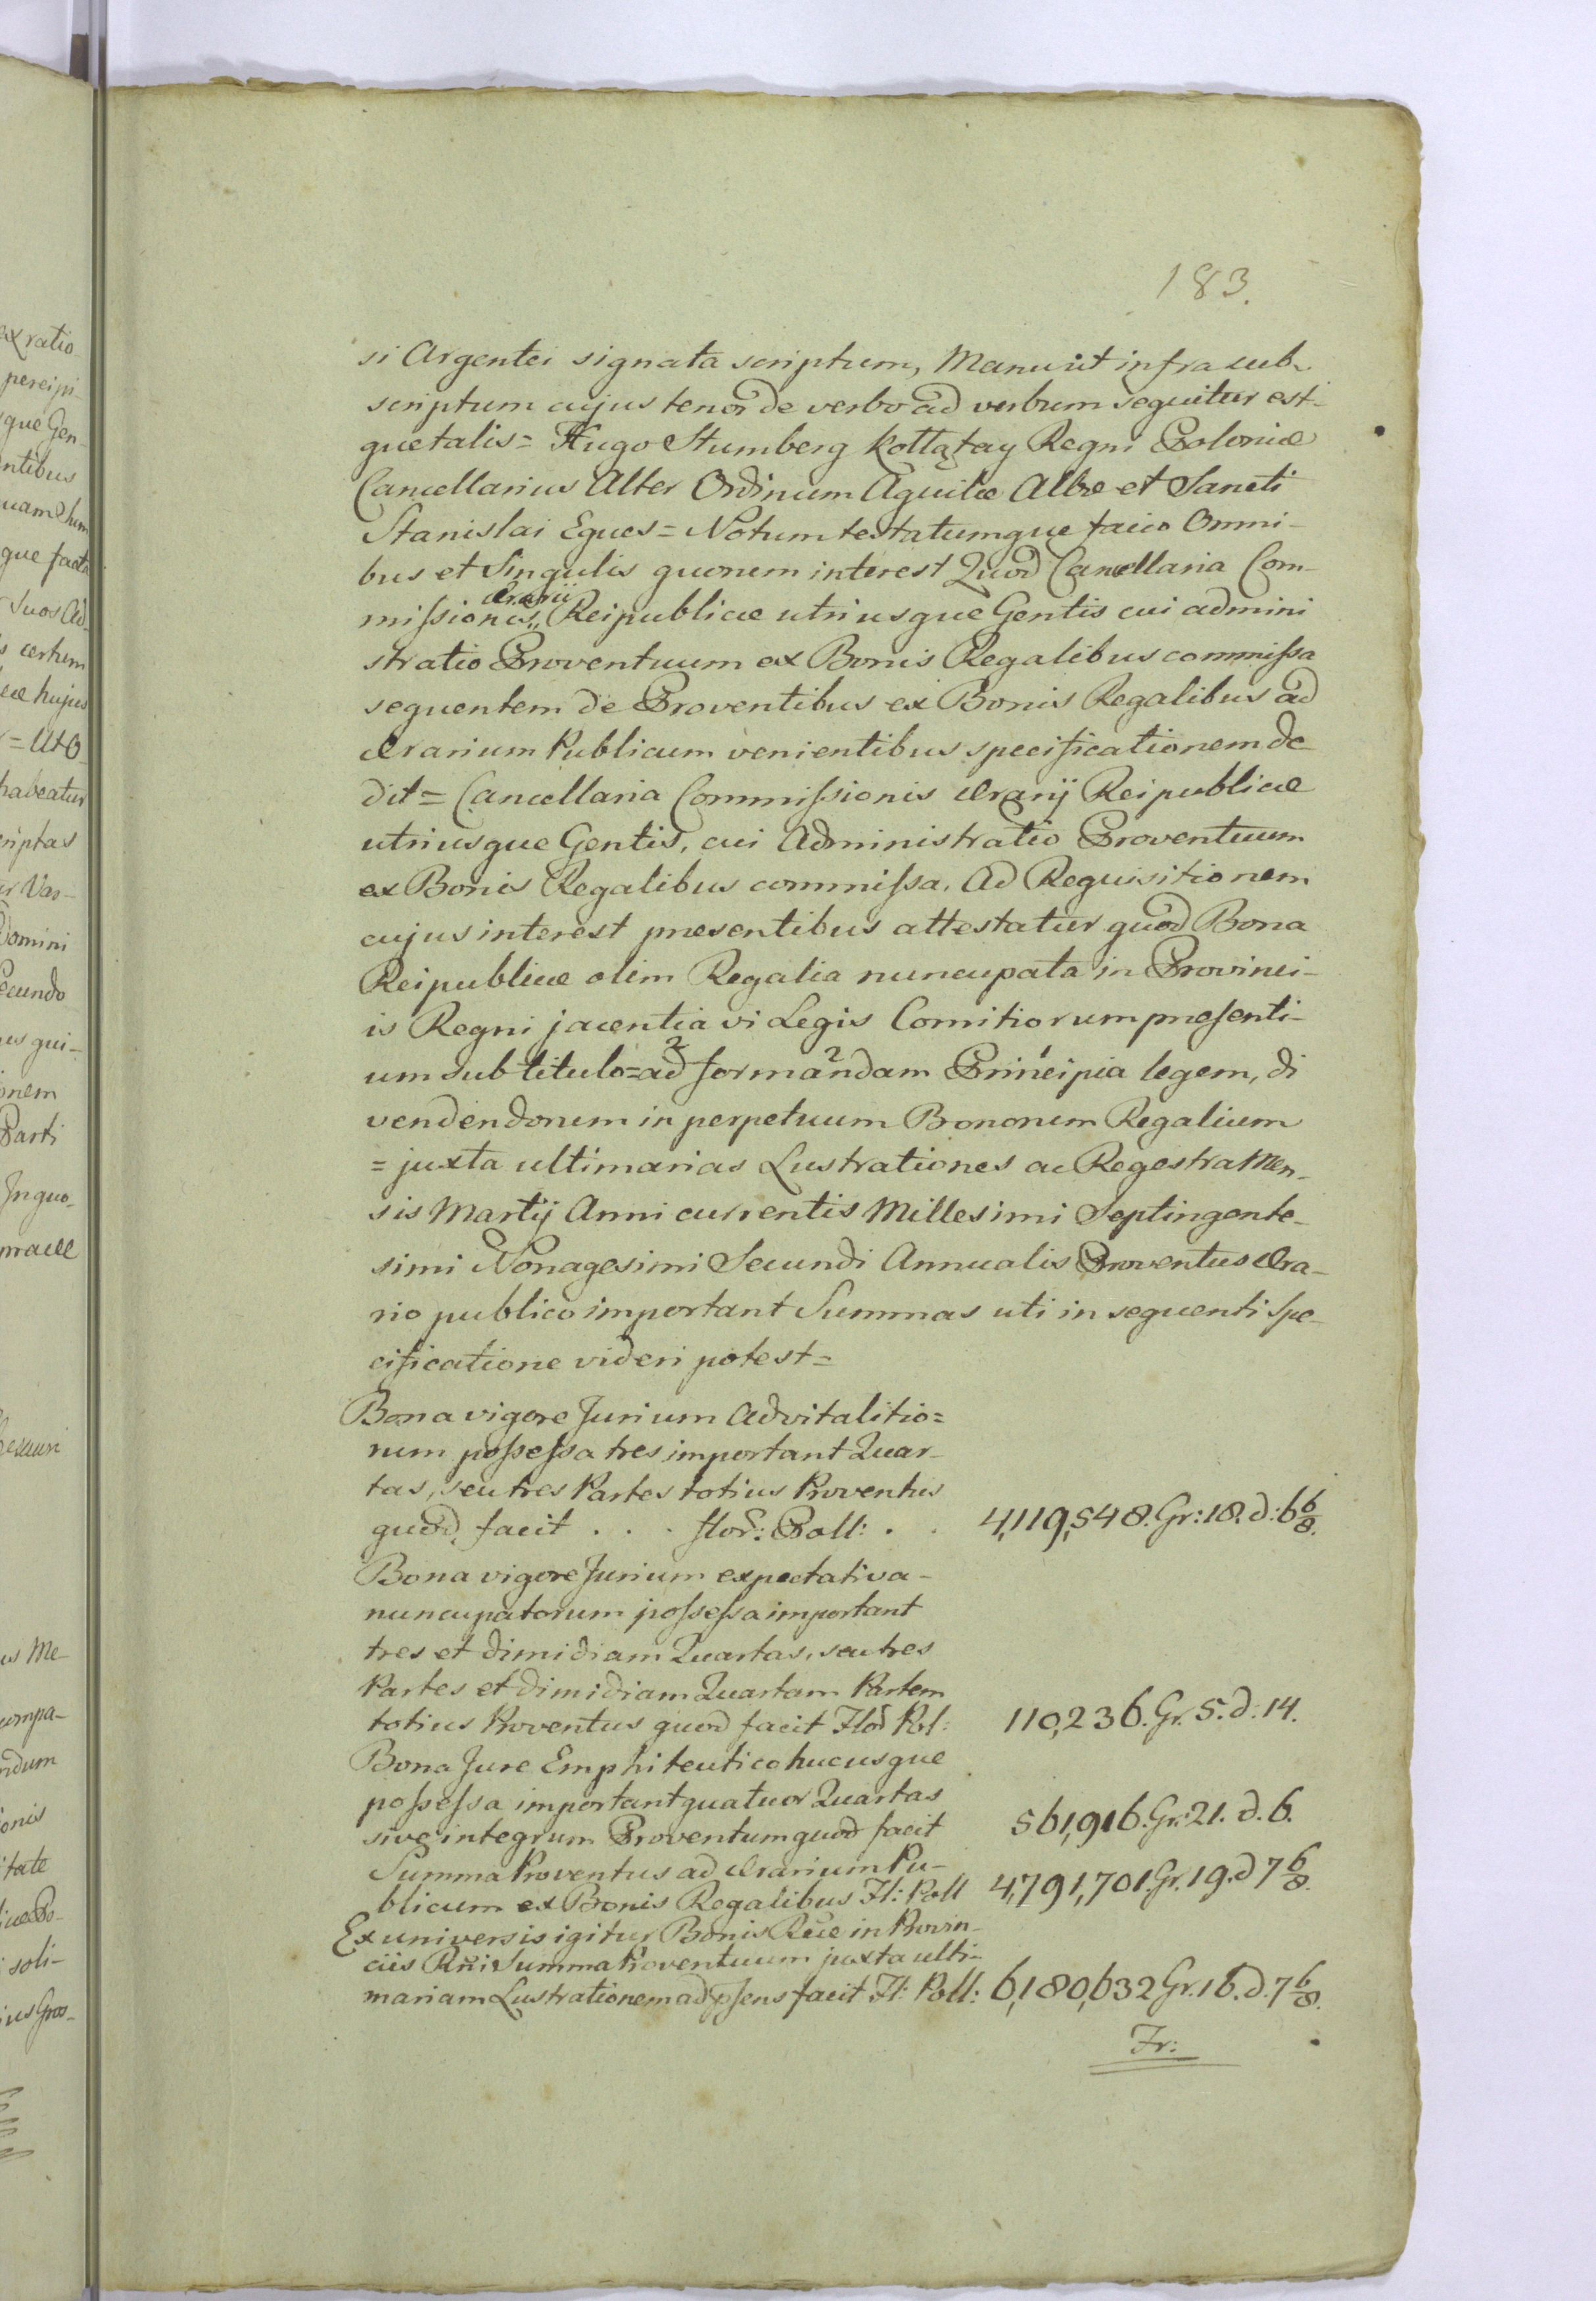 183.
si Argentei signata scriptum, Manu ut infra sub-
scriptum cujus tenor de verbo ad verbum sequitur est-
que talis = Hugo Stumberg Kottątay Regni Poloniæ
Cancellarius Alter Ordinum Aquilæ Albæ et Sancti
Stanislai Eques = Notum testatumque facio Omni-
bus et Singulis quorum interest Quod Cancellaria Com-
missionis „ Ærarii Reipublicæ utriusque Gentis cui admini
stratio Proventuum ex Bonis Regalibus commissa
sequentem de Proventibus ex Bonis Regalibus ad
Ærarium Publicum venientibus specificationem de
dit = Cancellaria Commissionis Ærarij Reipublicæ
utriusque Gentis, cui Administratio Proventuum
ex Bonis Regalibus commissa. Ad Requisitionem
cujus interest presentibus attestatur quod Bona
Reipublicæ olim Regalia nuncupata in Provinci-
is Regni jacentia vi Legis Comitiorum presenti-
um sub titulo = ad 2 formandam 2 Principia 1 legem, di
vendendorum in perpetuum Bonorum Regalium
= juxta ultimarias Lustrationes ac Regestra Men-
sis Martij Anni currentis Millesimi Septingente-
simi Nonagesimi Secundi Annualis Proventus Æra-
rio publico important Summas uti in sequenti Spe-
cificatione videri potest =
Bona vigore Jurium Advitalitio=
rum possessa tres important Quar-
tas, seu tres Partes totius Proventus
quod facit . . . flor: Poll: . . 4,119,548. Gr: 18. d: 6 6/8.
Bona vigore Jurium expectativa-
nuncupatorum possessa important
tres et dimidiam Quartas, seu tres
Partes et dimidiam Quartam Partem
totius Proventus quod facit Flor Pol: 110,236. Gr. 5. d. 14.
Bona Jure Emphiteutico hucusque
possessa important quatuor Quartas
sive integrum Proventum quod facit 561,916. Gr: 21. d. 6.
Summa Proventus ad Ærarium Pu-
blicum ex Bonis Regalibus Fl: Poll 4,791,701. Gr. 19. d 7 6/8.
Ex universis igitur Bonis Rcæ in Provin-
ciis Rni Summa Proventuum juxta ulti-
mariam Lustrationem ad psens facit Fl: Poll: 6,180,632 Gr. 16. d. 7 6/8.
Fr: